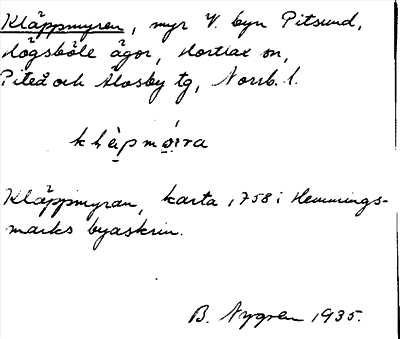 Kläppmyren, myr V. byn Pitsund,
Högsböle ägor, Hortlax sn,
Piteå och Älvsby tg, Norrb. l.
Kläppmyran, karta 1758 i Hemmings-
marks byaskrin.
B. Nygren 1935.